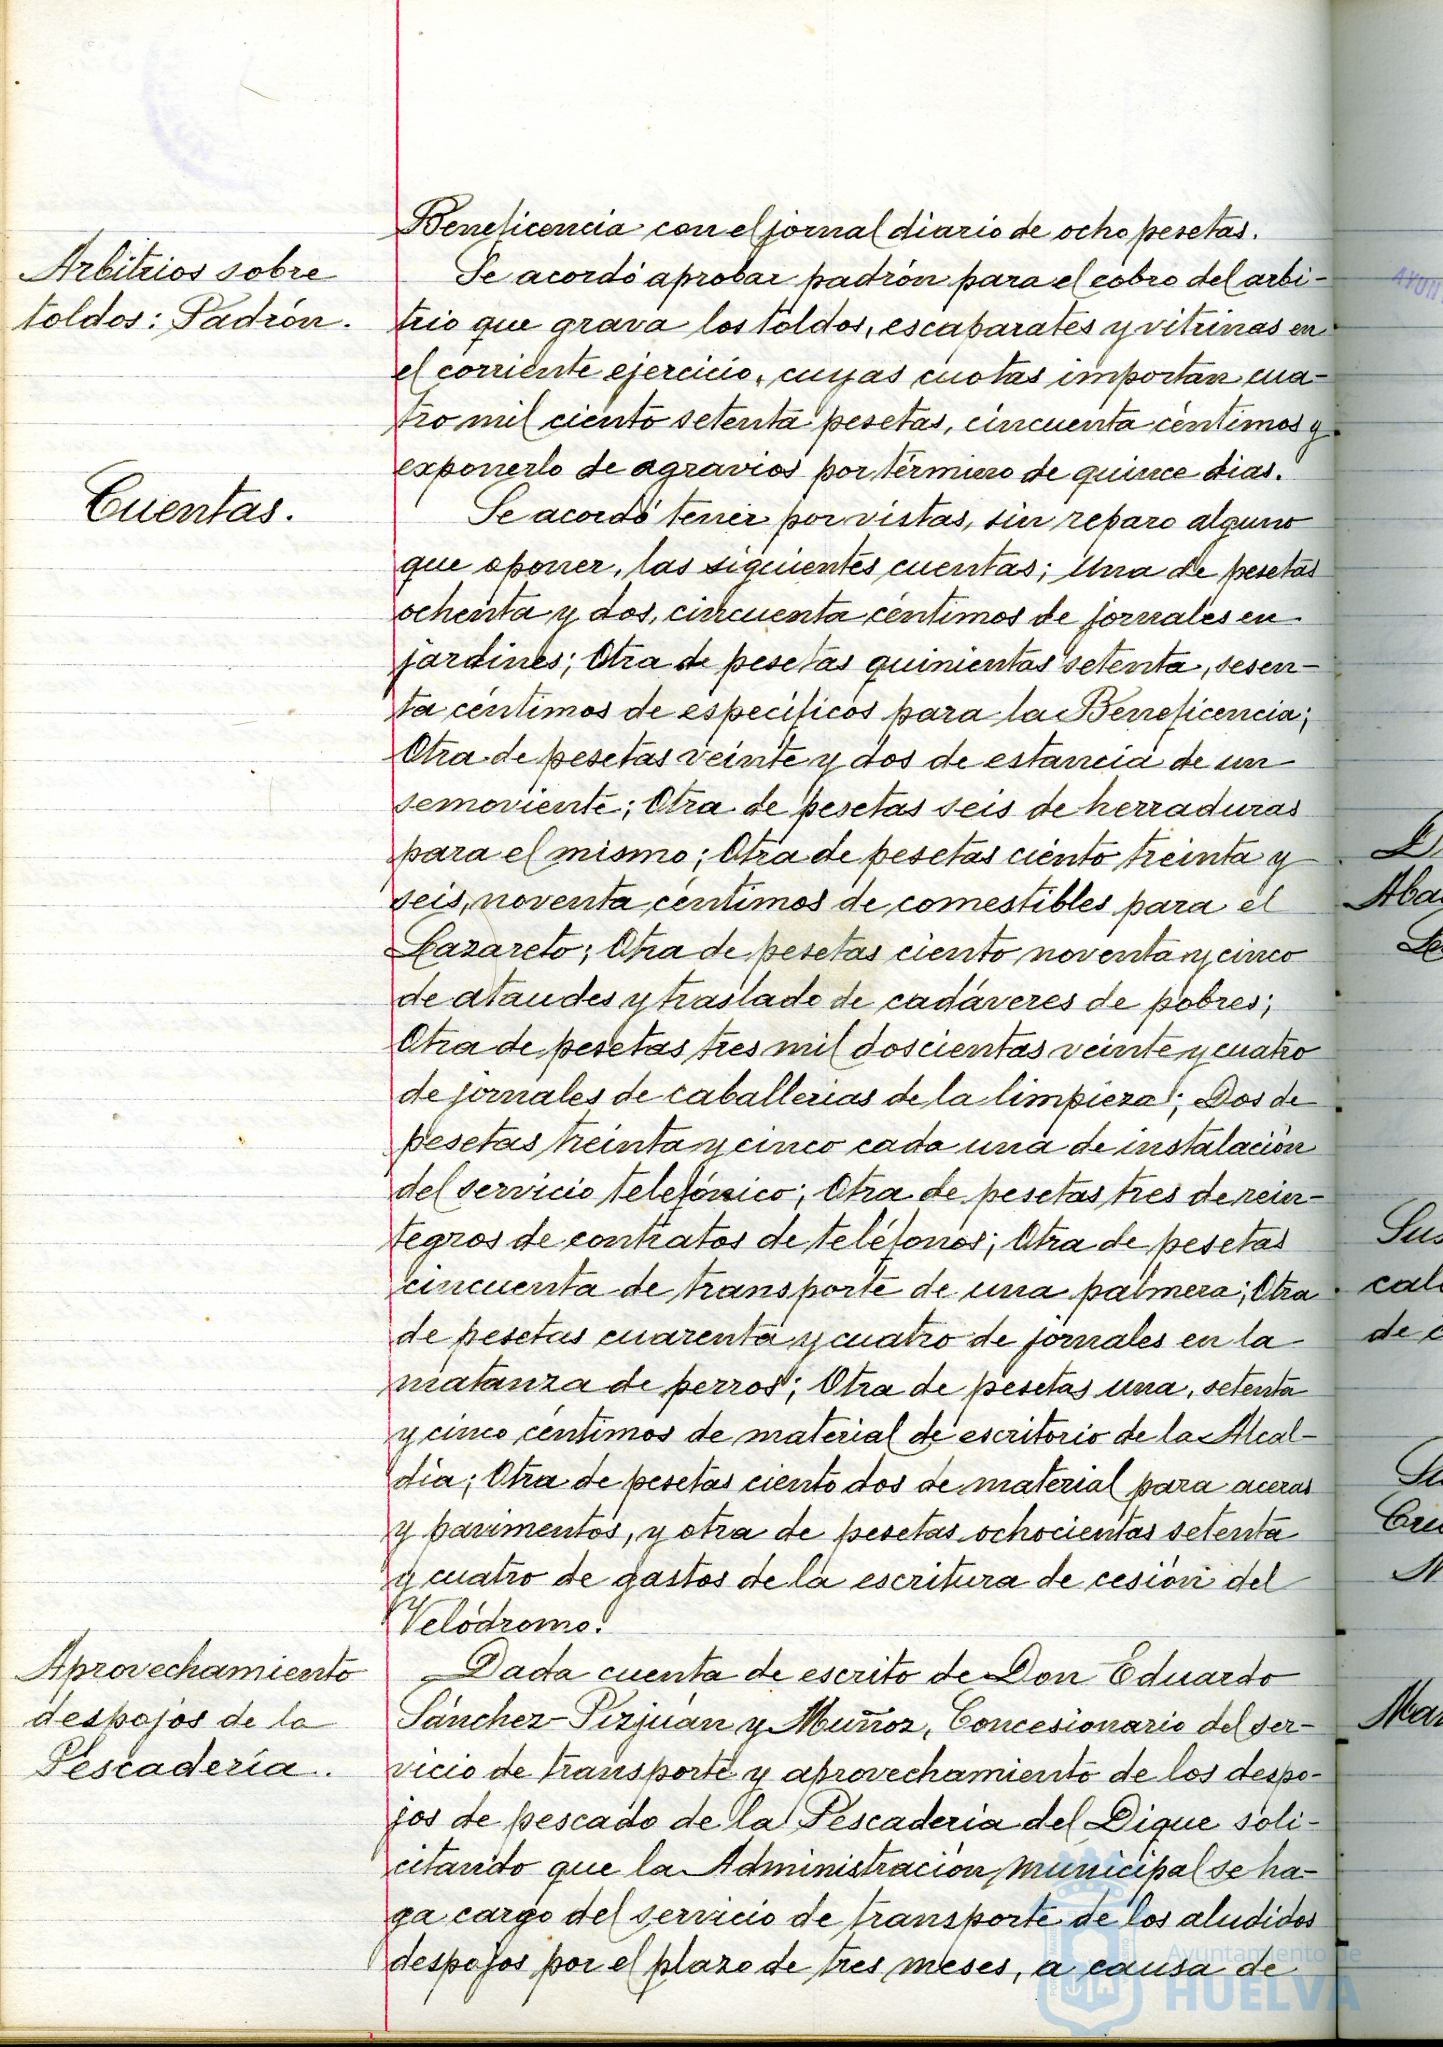 Beneficencia con el jornal diario de ocho pesetas.
Arbitrios sobre
toldos: Padrón.
Se acordó aprobar padrón para el cobro del arbi-
trio que grava los toldos, escaparates y vitrinas en
el corriente ejercicio, cuyas cuotas importan cua-
tro mil ciento setenta pesetas, cincuenta céntimos y
exponerlo de agravios por término de quince dias.
Cuentas.
Se acordó tener por vistas, sin reparo alguno
que oponer, las siguientes cuentas; Una de pesetas
ochenta y dos, cincuenta céntimos de jornales en
jardines; Otra de pesetas quinientas setenta, sesen-
ta céntimos de específicos para la Beneficencia;
Otra de pesetas veinte y dos de estancia de un
semoviente; Otra de pesetas seis de herraduras
para el mismo; Otra de pesetas ciento treinta y
seis, noventa céntimos de comestibles para el
Lazareto; Otra de pesetas ciento noventa y cinco
de ataudes y traslado de cadáveres de pobres;
Otra de pesetas tres mil doscientas veinte y cuatro
de jornales de caballerias de la limpieza; Dos de
pesetas treinta y cinco cada una de instalación
del servicio telefónico; Otra de pesetas tres de rein-
tegros de contratos de teléfonos; Otra de pesetas
cincuenta de transporte de una palmera; Otra
de pesetas cuarenta y cuatro de jornales en la
matanza de perros; Otra de pesetas una, setenta
y cinco céntimos de material de escritorio de la Alcal-
día; Otra de pesetas ciento dos de material para aceras
y pavimentos, y otra de pesetas ochocientas setenta
y cuatro de gastos de la escritura de cesión del
Velódromo.
Aprovechamiento
despojos de la
Pescadería.
Dada cuenta de escrito de Don Eduardo
Sánchez-Pizjuán y Muñoz, Concesionario del ser-
vicio de transporte y aprovechamiento de los despo-
jos de pescado de la Pescadería del Dique soli-
citando que la Administración municipal se ha-
ga cargo del servicio de transporte de los aludidos
despojos por el plazo de tres meses, a causa de
Ayuntamiento de
HUELVA